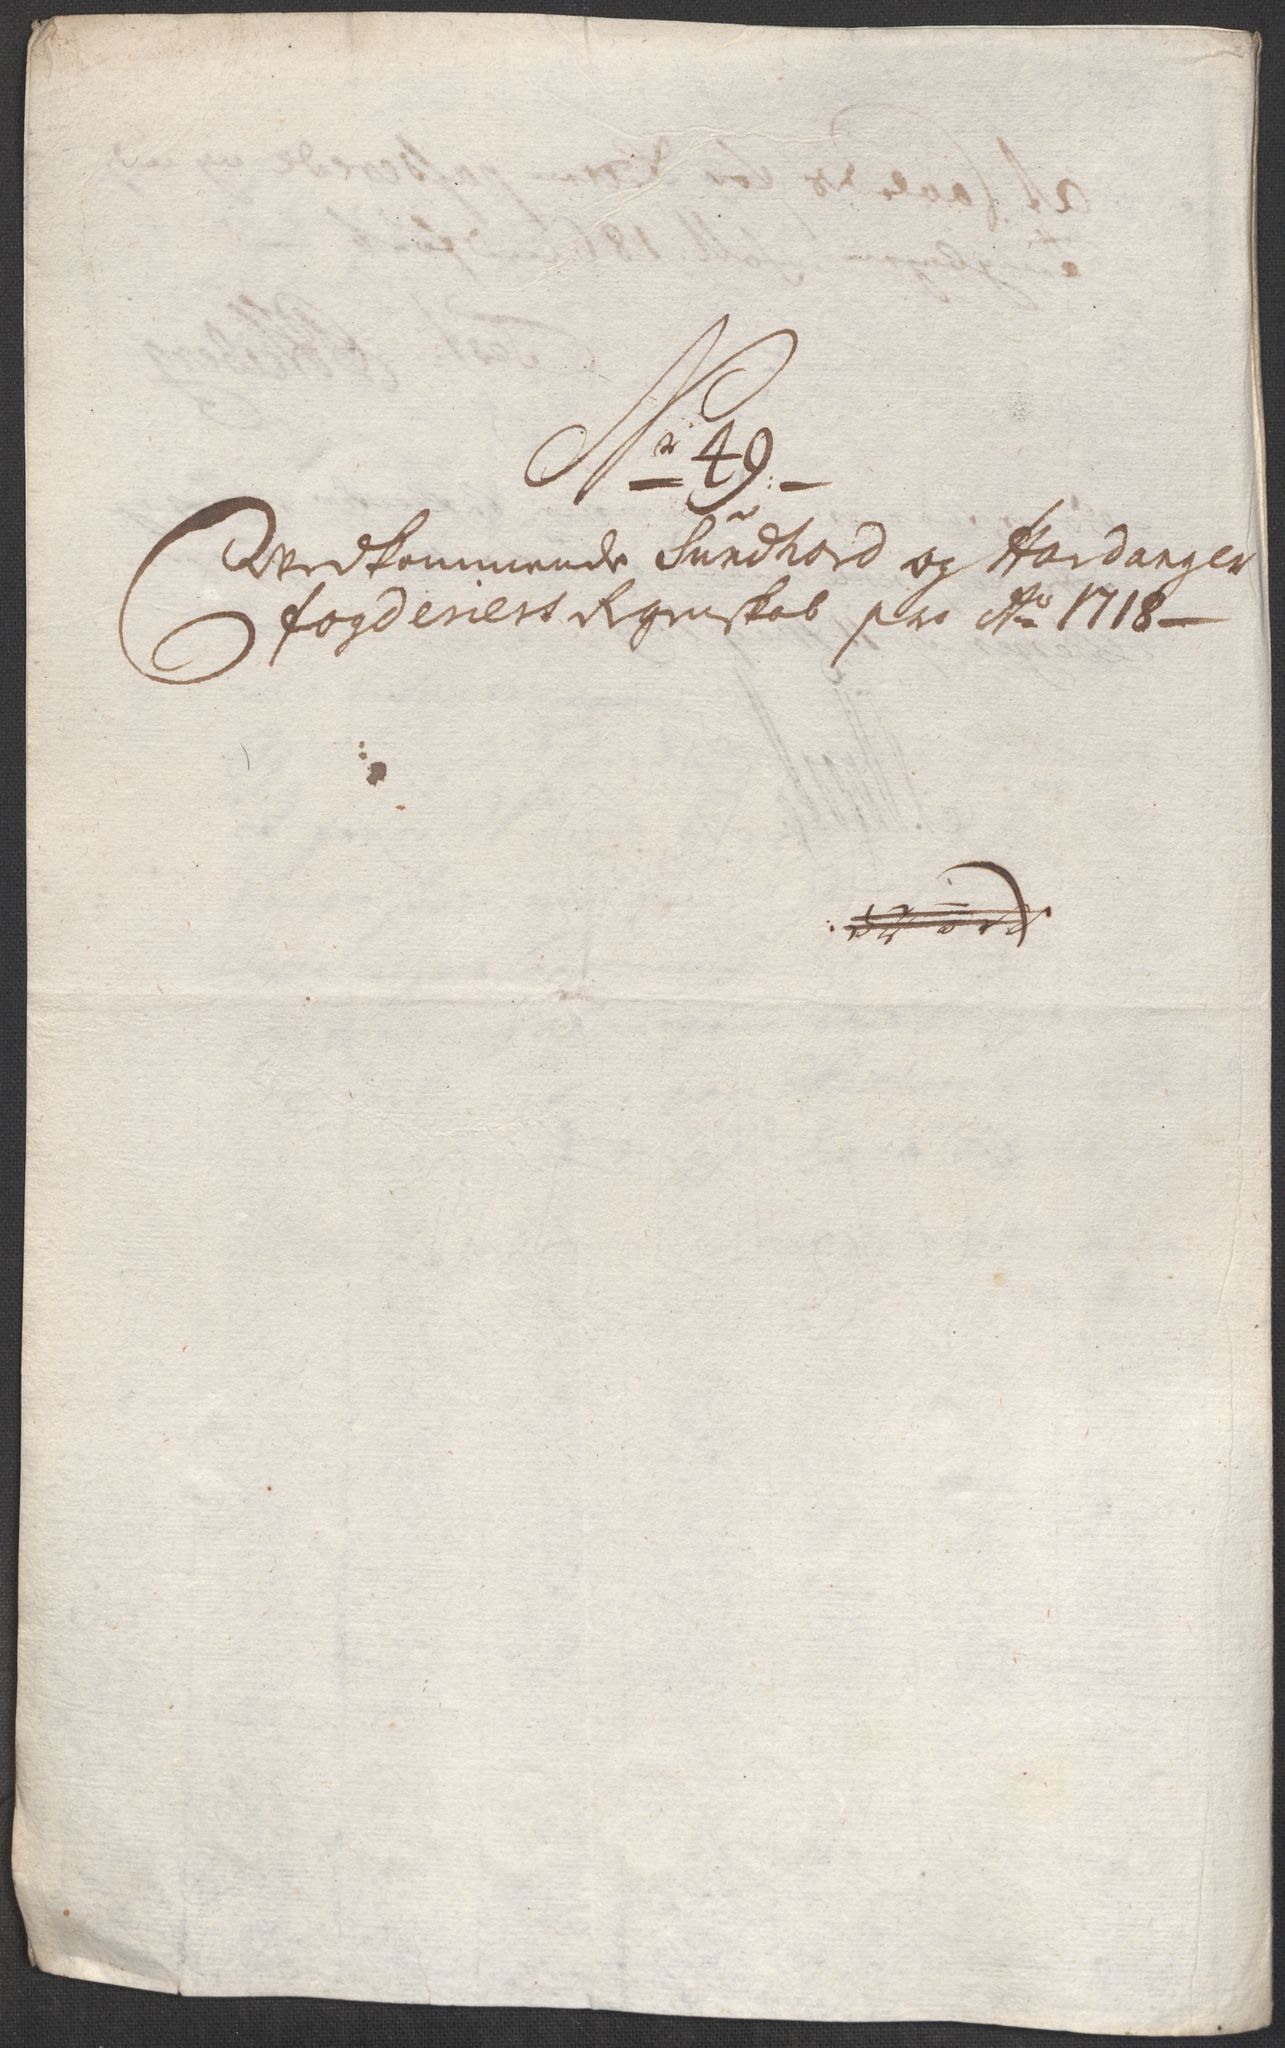 Nr 49.
Vedkommende Sundhord og Hardanger
fogderiers Regnskab pro Ao 1718